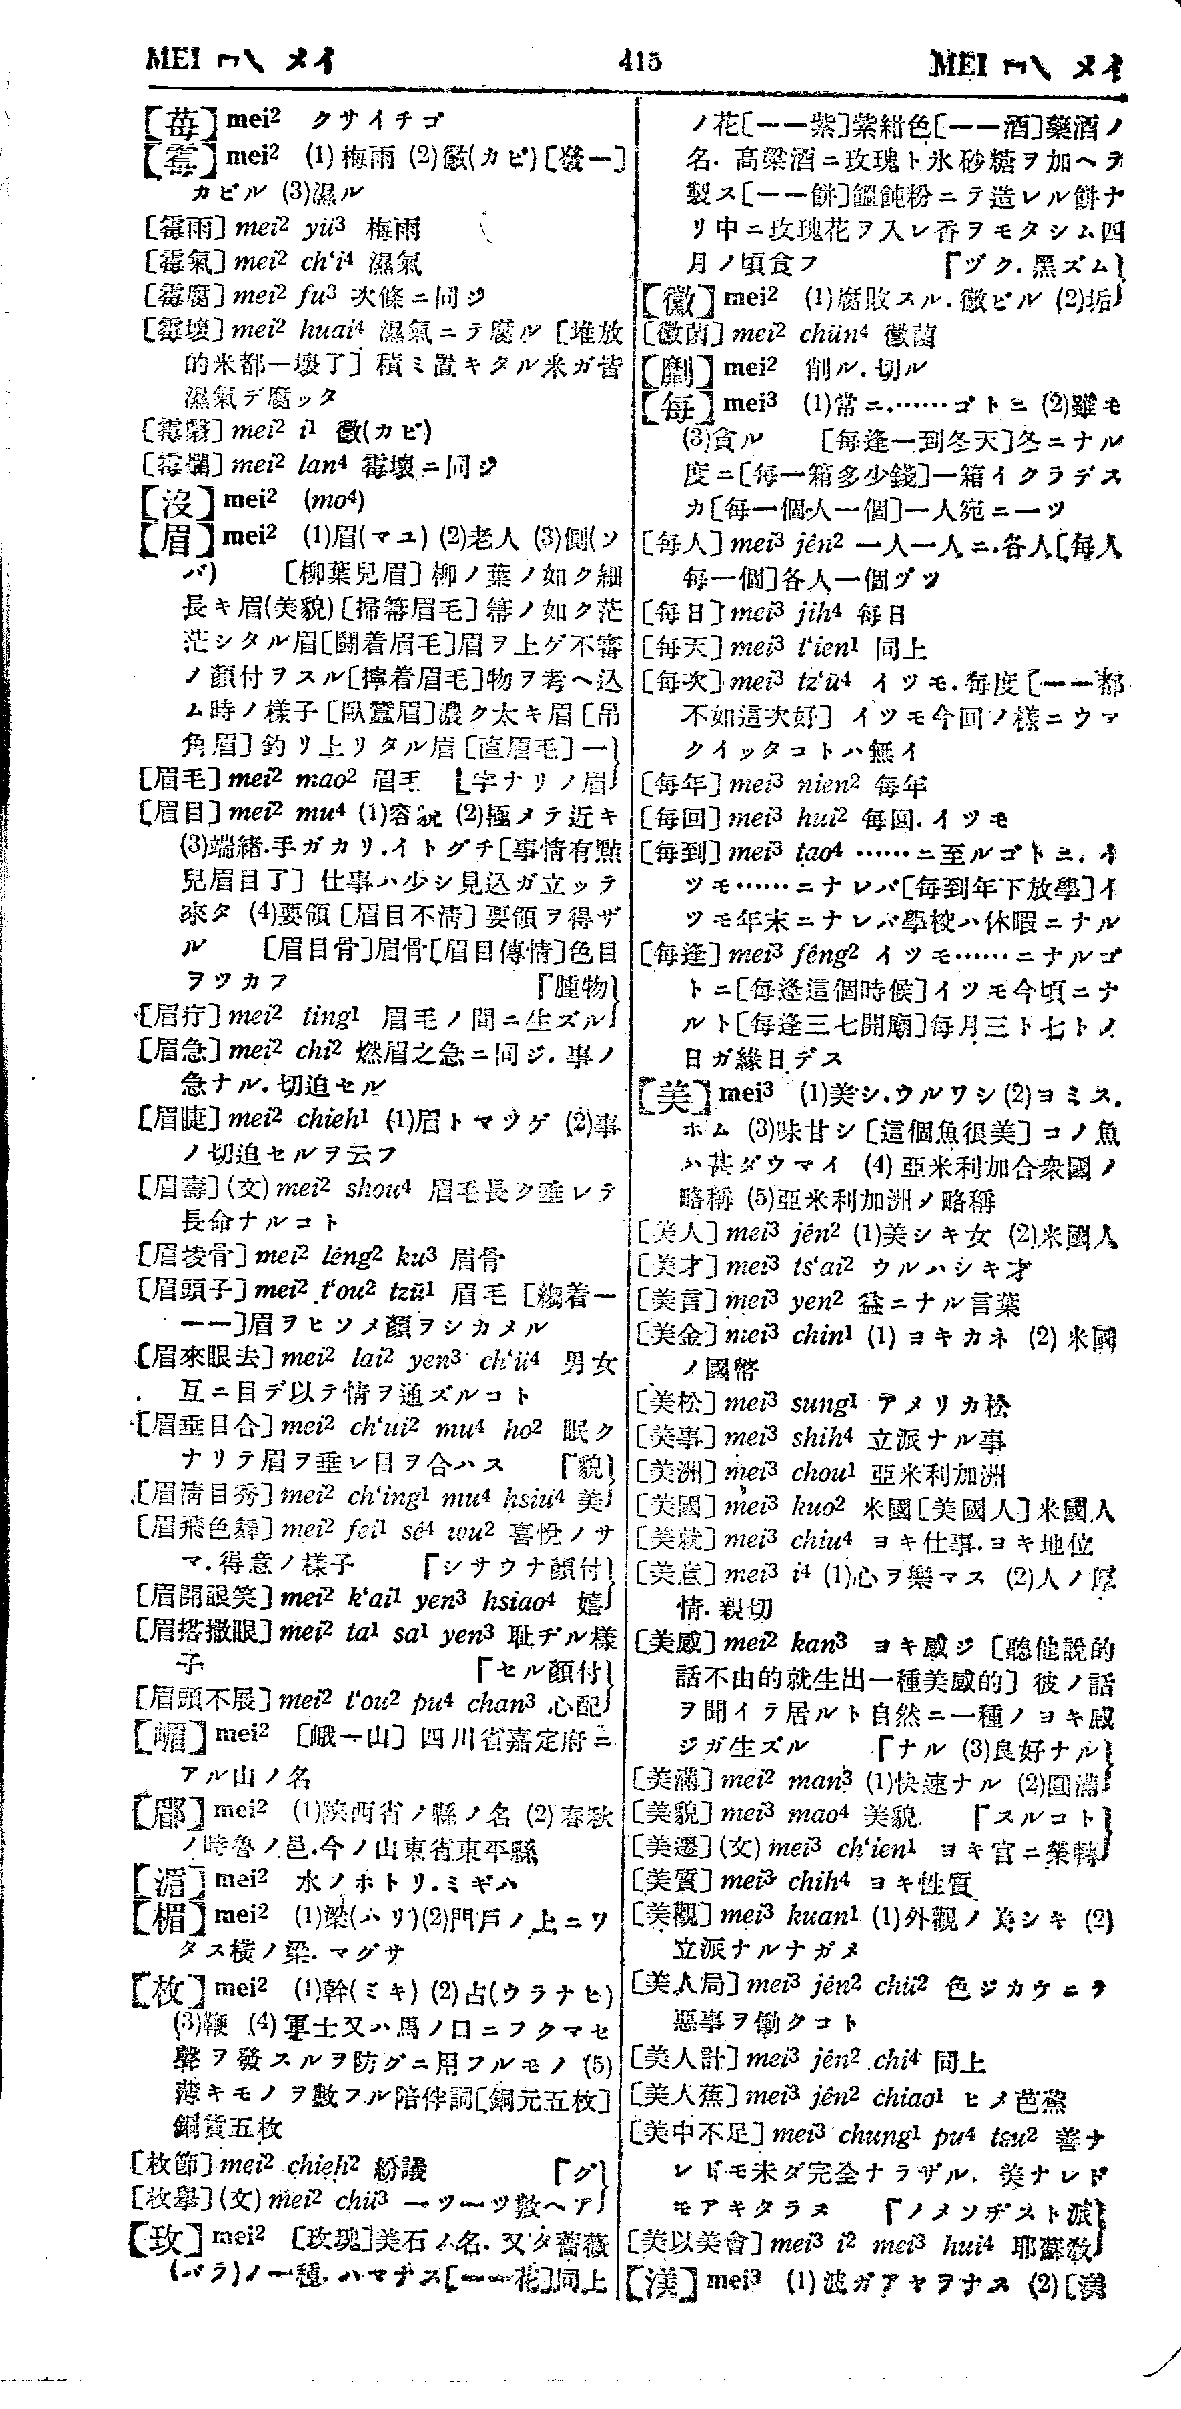 MEI ㄇㄟ メイ 415 MEI ㄇㄟ メイ
【苺】mei² クサイチゴ
【霉】mei² (1)梅雨 (2)黴(カビ)[發一]
カビル (3)濕ル
[霉雨] mei² yü³ 梅雨
[霉氣] mei² ch'i⁴ 濕氣
[霉腐] mei² fu³ 次條ニ同ジ
[霉壞] mei² huai⁴ 濕氣ニテ腐ル [堆放
的米都一壞了] 積ミ置キタル米ガ皆
濕氣デ腐ッタ
[霉黳] mei² i¹ 黴(カビ)
[霉爛] mei² lan⁴ 霉壞ニ同ジ
【沒】mei² (mo⁴)
【眉】mei² (1)眉(マユ) (2)老人 (3)側(ソ
バ) [柳葉兒眉] 柳ノ葉ノ如ク細
長キ眉(美貌)[掃箒眉毛] 箒ノ如ク茫
茫シタル眉[鬪着眉毛]眉ヲ上ゲ不審
ノ顏付ヲスル[擰着眉毛]物ヲ考ヘ込
ム時ノ樣子[臥蠶眉]濃ク太キ眉[吊
角眉] 釣リ上リタル眉 [直眉毛] 一
[眉毛] mei² mao² 眉毛 「字ナリノ眉
[眉目] mei² mu⁴ (1)容貌 (2)極メテ近キ
(3)端緒.手ガカリ.イトグチ[事情有點
兒眉目了] 仕事ハ少シ見込ガ立ッテ
來タ (4)要領 [眉目不淸] 要領ヲ得ザ
ル [眉目骨]眉骨[眉目傳情]色目
ヲツカフ 「腫物
[眉疔] mei² ting¹ 眉毛ノ間ニ生ズル
[眉急] mei² chi² 燃眉之急ニ同ジ.事ノ
急ナル.切迫セル
[眉睫] mei² chieh¹ (1)眉トマツゲ (2)事
ノ切迫セルヲ云フ
[眉壽](文) mei² shou⁴ 眉毛長ク垂レテ
長命ナルコト
[眉棱骨] mei² lêng² ku³ 眉骨
[眉頭子] mei² t'ou² tzŭ¹ 眉毛 [縐着一
一一]眉ヲヒソメ顏ヲシカメル
[眉來眼去] mei² lai² yen³ ch'ü⁴ 男女
互ニ目デ以テ情ヲ通ズルコト
[眉垂目合] mei² ch'ui² mu⁴ ho² 眠ク
ナリテ眉ヲ垂レ目ヲ合ハス 「貌
[眉淸目秀] mei² ch'ing¹ mu⁴ hsiu⁴ 美
[眉飛色舞] mei² fei¹ sê⁴ wu² 喜悅ノサ
マ.得意ノ樣子 「シサウナ顏付
[眉開眼笑] mei² k'ai¹ yen³ hsiao⁴ 嬉
[眉搭撒眼] mei² ta¹ sa¹ yen³ 耻ヂル樣
子 「セル顏付
[眉頭不展] mei² t'ou² pu⁴ chan³ 心配
【嵋】mei² [峨一山] 四川省嘉定府ニ
アル山ノ名
【郿】mei² (1)陝西省ノ縣ノ名 (2)春秋
ノ時魯ノ邑.今ノ山東省東平縣
【湄】mei² 水ノホトリ.ミギハ
【楣】mei² (1)梁(ハリ)(2)門戶ノ上ニワ
タス橫ノ梁.マグサ
【枚】mei² (1)幹(ミキ) (2)占(ウラナヒ)
(3)鞭 (4)軍士又ハ馬ノ口ニフクマセ
聲ヲ發スルヲ防グニ用フルモノ (5)
薄キモノヲ數フル陪伴詞[銅元五枚]
銅貨五枚
[枚節] mei² chieh² 紛議 「グ
[枚擧](文) mei² chü³ 一ツ一ツ數ヘア
【玫】mei² [玫瑰]美石ノ名.又タ薔薇
(バラ)ノ一種.ハマナス[一一花]同上
ノ花[一一紫]紫紺色[一一酒]藥酒ノ
名.高梁酒ニ玫瑰ト氷砂糖ヲ加ヘテ
製ス[一一餠]饂飩粉ニテ造レル餠ナ
リ中ニ玫瑰花ヲ入レ香ヲモタシム四
月ノ頃食フ 「ヅク.黑ズム
【黴】mei² (1)腐敗スル.黴ビル (2)垢
[黴菌] mei² chün⁴ 黴菌
【劘】mei² 削ル.切ル
【每】mei³ (1)常ニ.……ゴトニ (2)雖モ
(3)貪ル [每逢一到冬天]冬ニナル
度ニ[每一箱多少錢]一箱イクラデス
カ[每一個人一個]一人宛ニ一ツ
[每人] mei³ jên² 一人一人ニ.各人[每人
每一個]各人一個ヅツ
[每日] mei³ jih⁴ 每日
[每天] mei³ t'ien¹ 同上
[每次] mei³ tz'ŭ⁴ イツモ.每度[一一都
不如這次好] イツモ今回ノ樣ニウマ
クイッタコトハ無イ
[每年] mei³ nien² 每年
[每回] mei³ hui² 每回.イツモ
[每到] mei³ tao⁴ ……ニ至ルゴトニ.イ
ツモ……ニナレバ[每到年下放學]イ
ツモ年末ニナレバ學校ハ休暇ニナル
[每逢] mei³ fêng² イツモ……ニナルゴ
トニ[每逢這個時候]イツモ今頃ニナ
ルト[每逢三七開廟]每月三ト七トノ
日ガ緣日デス
【美】mei³ (1)美シ.ウルワシ(2)ヨミス.
ホム (3)味甘シ[這個魚很美] コノ魚
ハ甚ダウマイ (4)亞米利加合衆國ノ
略稱 (5)亞米利加洲ノ略稱
[美人] mei³ jên² (1)美シキ女 (2)米國人
[美才] mei³ ts'ai² ウルハシキ才
[美言] mei³ yen² 益ニナル言葉
[美金] mei³ chin¹ (1)ヨキカネ (2)米國
ノ國幣
[美松] mei³ sung¹ アメリカ松
[美事] mei³ shih⁴ 立派ナル事
[美洲] mei³ chou¹ 亞米利加洲
[美國] mei³ kuo² 米國[美國人]米國人
[美就] mei³ chiu⁴ ヨキ仕事.ヨキ地位
[美意] mei³ i⁴ (1)心ヲ樂マス (2)人ノ厚
情.親切
[美感] mei² kan³ ヨキ感ジ [聽他說的
話不由的就生出一種美感的] 彼ノ話
ヲ聞イテ居ルト自然ニ一種ノヨキ感
ジガ生ズル 「ナル (3)良好ナル
[美滿] mei² man³ (1)快速ナル (2)圓滿
[美貌] mei³ mao⁴ 美貌 「スルコト
[美遷](文) mei³ ch'ien¹ ヨキ官ニ榮轉
[美質] mei³ chih⁴ ヨキ性質
[美觀] mei³ kuan¹ (1)外觀ノ美シキ (2)
立派ナルナガメ
[美人局] mei³ jên² chü² 色ジカケニテ
惡事ヲ働クコト
[美人計] mei³ jên² chi⁴ 同上
[美人蕉] mei³ jên² chiao¹ ヒメ芭蕉
[美中不足] mei³ chung¹ pu⁴ tsu² 善ナ
レドモ未ダ完全ナラザル.美ナレド
モアキタラヌ 「ノメソヂスト派
[美以美會] mei³ i² mei³ hui⁴ 耶蘇敎
【渼】mei³ (1)波ガアヤヲナス (2)[渼